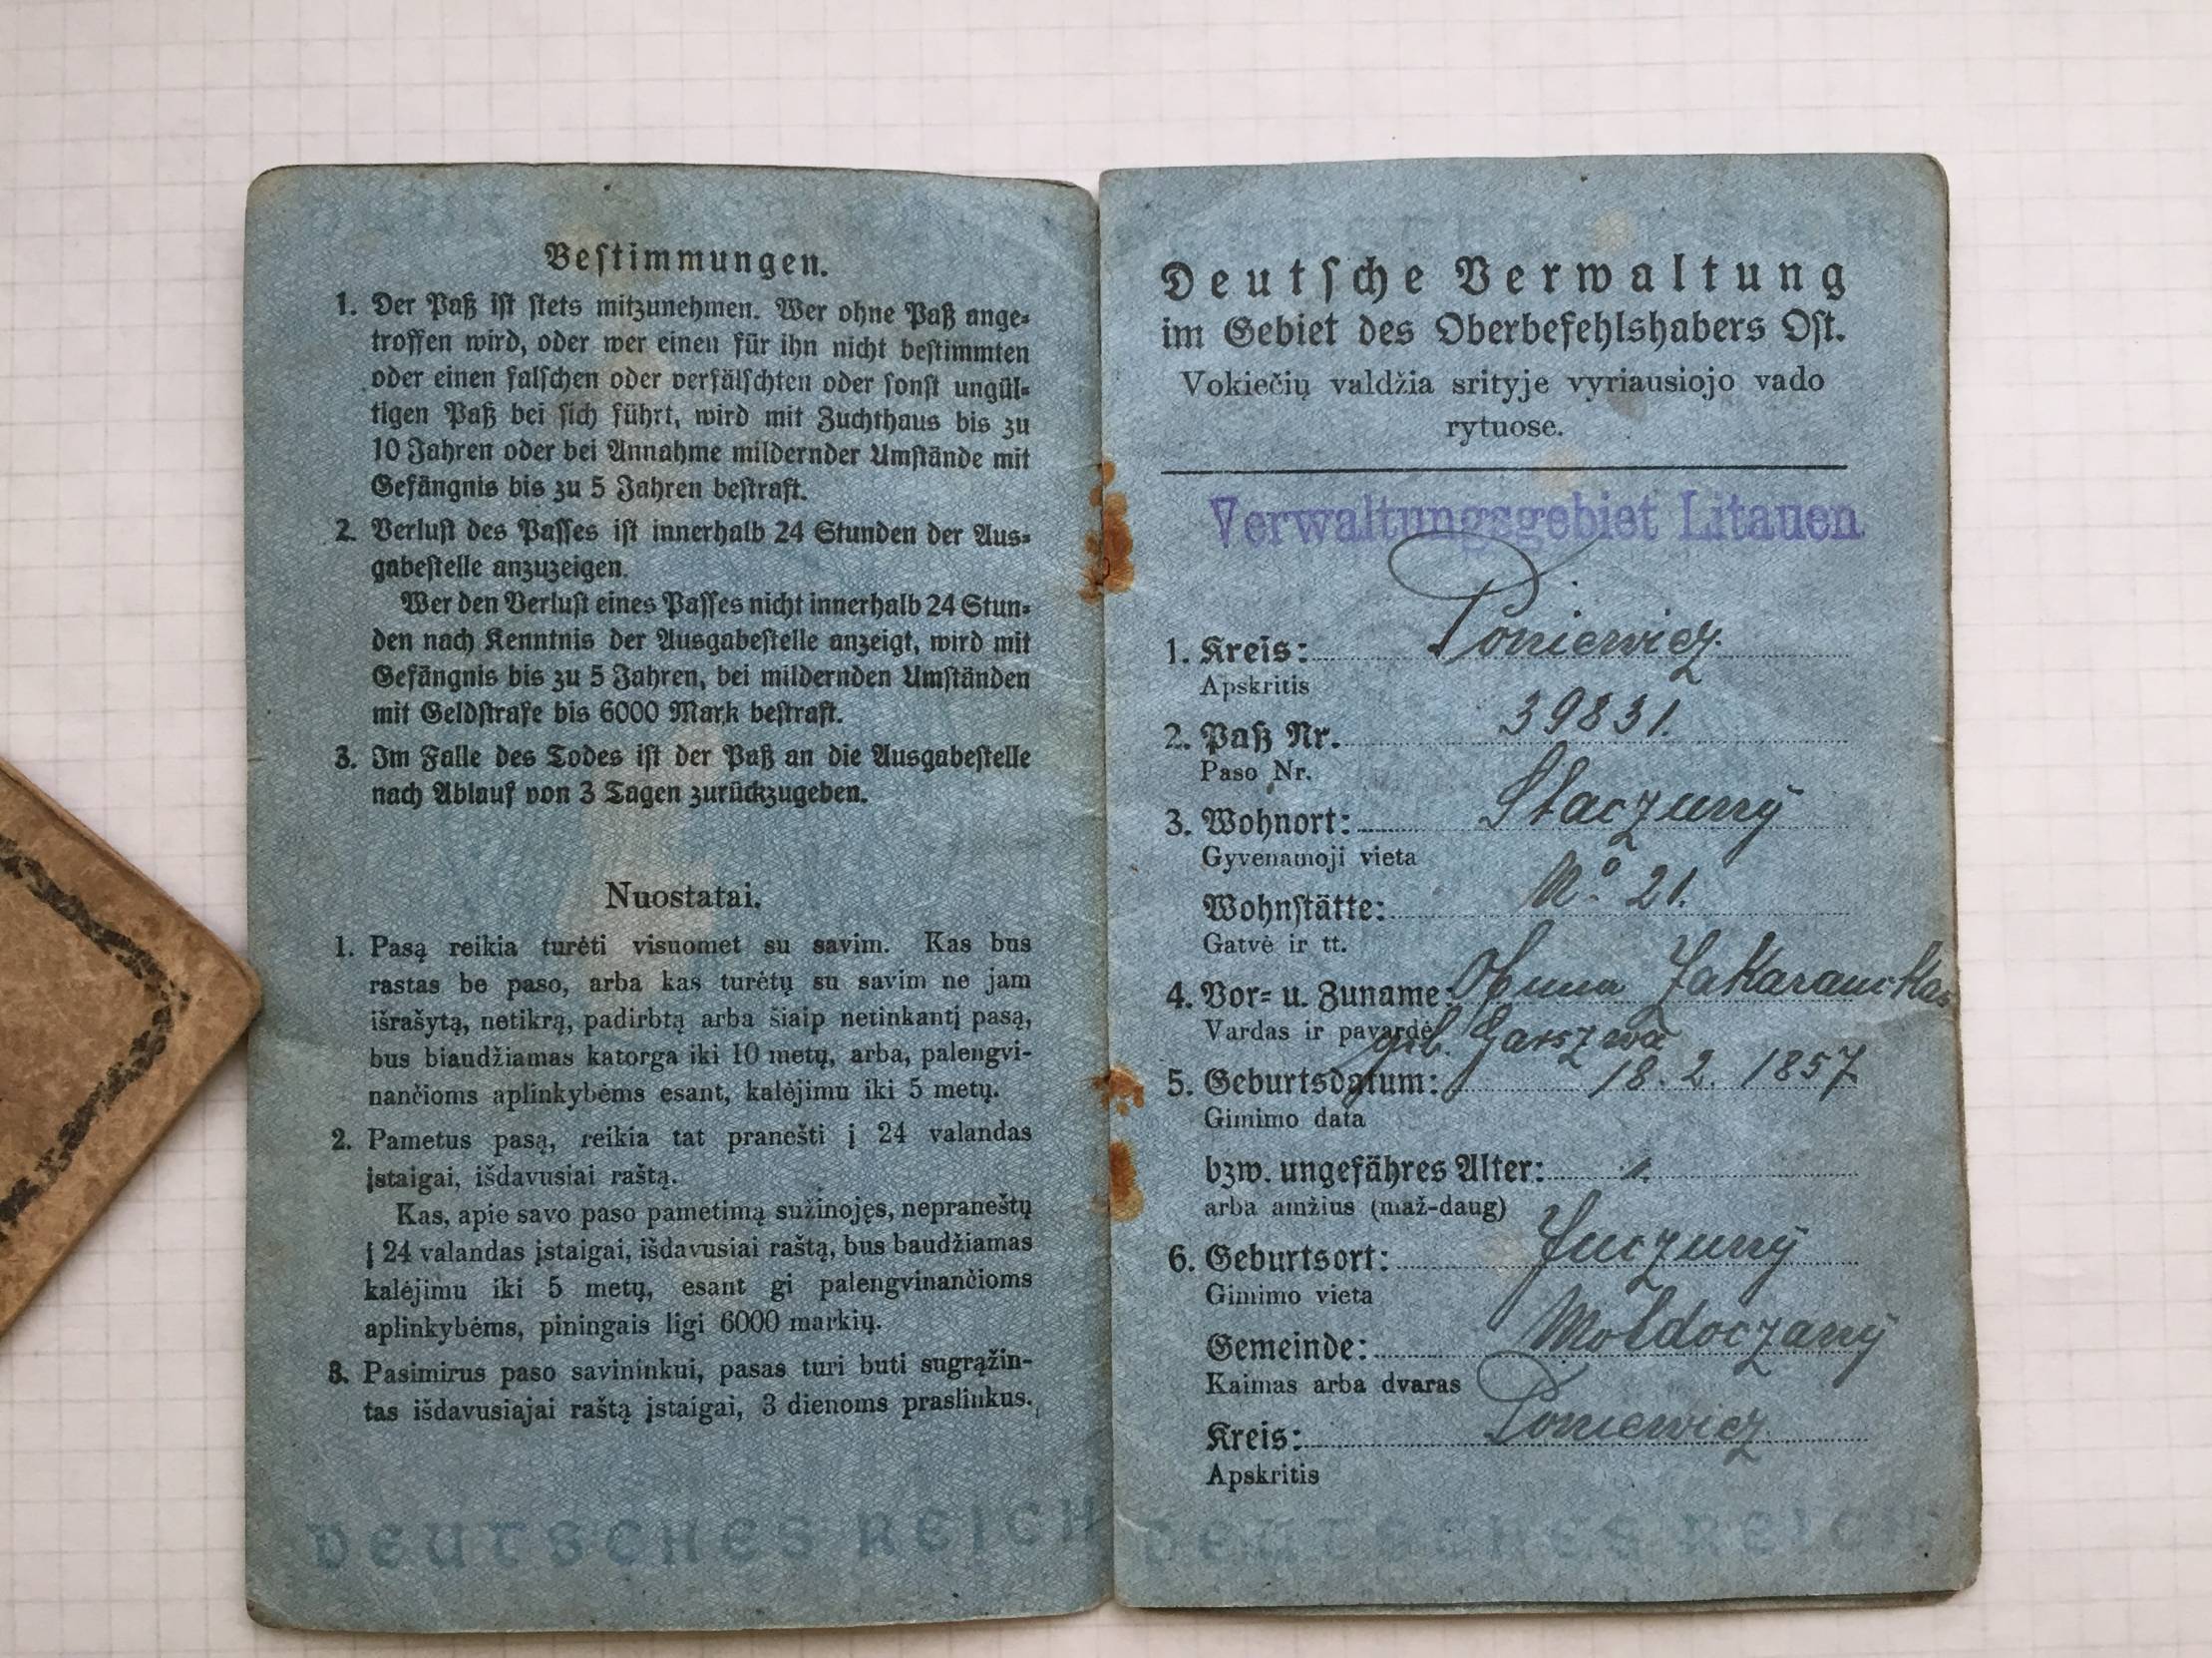 Bestimmungen.
1. Der Paß ist stets mitzunehmen. Wer ohne Paß ange-
troffen wird, oder wer einen für ihn nicht bestimmten
oder einen falschen oder verfälschten oder sonst ungül-
tigen Paß bei sich führt, wird mit Zuchthaus bis zu
10 Jahren oder bei Annahme mildernder Umstände mit
Gefängnis bis zu 5 Jahren bestraft.
2. Verlust des Passes ist innerhalb 24 Stunden der Aus-
gabestelle anzuzeigen.
Wer den Verlust eines Passes nicht innerhalb 24 Stun-
den nach Kenntnis der Ausgabestelle anzeigt, wird mit
Gefängnis bis zu 5 Jahren, bei mildernden Umständen
mit Geldstrafe bis 6000 Mark bestraft.
3. Im Falle des Todes ist der Paß an die Ausgabestelle
nach Ablauf von 3 Tagen zurückzugeben.
Nuostatai.
1. Pasą reikia turėti visuomet su savim. Kas bus
rastas be paso, arba kas turėtų su savim ne jam
išrašytą, netikrą, padirbtą arba šiaip netinkantį pasą,
bus biaudžiamas katorga iki 10 metų, arba, palengvi-
nančioms aplinkybėms esant, kalėjimu iki 5 metų.
2. Pametus pasą, reikia tat pranešti į 24 valandas
įstaigai, išdavusiai raštą.
Kas, apie savo paso pametimą sužinojęs, nepraneštų
į 24 valandas įstaigai, išdavusiai raštą, bus baudžiamas
kalėjimu iki 5 metų, esant gi palengvinančioms
aplinkybėms, piningais ligi 6000 markių.
3. Pasimirus paso savininkui, pasas turi buti sugrąžin-
tas išdavusiajai raštą įstaigai, 3 dienoms praslinkus.
DEUTSCHES REICH
Deutsche Verwaltung
im Gebiet des Oberbefehlshabers Ost.
Vokiečių valdžia srityje vyriausiojo vado
rytuose.
Verwaltungsgebiet Litauen
1. Kreis: Poniewicz
Apskritis
2. Paß Nr. 39831.
Paso Nr.
3. Wohnort: Staczuny
Gyvenamoji vieta
Wohnstätte: No 21.
Gatvė ir tt.
4. Vor- u. Zuname:
Vardas ir pavardė geb. Garszwa
5. Geburtsdatum: 18. 2. 1857
Gimimo data
bzw. ungefähres Alter:
arba amžius (maž-daug)
6. Geburtsort: Juczuny
Gimimo vieta
Gemeinde: Moldoczany
Kaimas arba dvaras
Kreis: Poniewicz
Apskritis
DEUTSCHES REICH